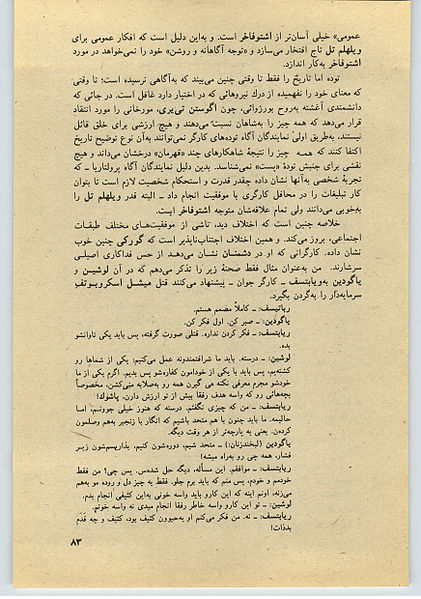 عمومی» خیلی آسان‌تر از اشتوفاخر است. و به‌این دلیل است که افکار عمومی برای
ویلهلم تل تاج افتخار می‌سازد و «توجه آگاهانه و روشن» خود را نمی‌خواهد در مورد
اشتوفاخر به‌کار اندازد.
توده اما تاریخ را فقط تا وقتی چنین می‌بیند که به‌آگاهی نرسیده است؛ تا وقتی
که معنای خود را نفهمیده از درك نیروهائی که در اختیار دارد غافل است. در جائی که
دانشمندی آغشته به‌روح بورژوائی، چون اگوستن تی‌یری، مورخانی را مورد انتقاد
قرار می‌دهد که همه چیز را به‌شاهان نسبت می‌دهند و هیچ ارزشی برای خلق قائل
نیستند، به‌طریق اولی نمایندگان آگاه توده‌های کارگر نمی‌توانند به‌آن نوع توضیح تاریخ
اکتفا کنند که همه چیز را نتیجهٔ شاهکارهای چند «قهرمان» درخشان می‌داند و هیچ
نقشی برای جنبش تودهٔ «پست» نمی‌شناسد. بدین دلیل نمایندگان آگاه پرولتاریا ـ که
تجربهٔ شخصی به‌آنها نشان داده چقدر قدرت و استحکام شخصیت لازم است تا بتوان
کار تبلیغات را در محافل کارگری با موفقیت انجام داد ـ البته قدر ویلهلم تل را
به‌خوبی می‌دانند ولی تمام علاقه‌شان متوجه اشتوفاخر است.
خلاصه چنین است که اختلاف دید، ناشی از موقعیت‌های مختلف طبقات
اجتماعی، بروز می‌کند. و همین اختلاف اجتناب‌ناپذیر است که گورکی چنین خوب
نشان داده. کارگرانی که او در دشمنان نشان می‌دهد از حس فداکاری اصیلی
سرشارند. من به‌عنوان مثال فقط صحنهٔ زیر را تذکر می‌دهم که در آن لوشین و
یاگودین به‌ریابتسف ـ کارگر جوان ـ پیشنهاد می‌کنند قتل میشل اسکروبوتف
سرمایه‌دار را به‌گردن بگیرد.
ریابتسف: ـ کاملاً مصمم هستم.
یاگودین: ـ صبر کن. اول فکر کن.
ریابتسف: ـ فکر کردن نداره. قتلی صورت گرفته، پس باید یکی تاوانشو
بده.
لوشین: ـ درسته. باید ما شرافتمندونه عمل می‌کنیم: یکی از شماها رو
کشته‌یم، پس باید با یکی از خودامون کفاره‌شو پس بدیم. اگرم یکی از ما
خودشو مجرم معرفی نکنه می گیرن همه رو به‌صلابه می‌کشن، مخصوصاً
بچه‌هائی رو که واسه هدف رفقا بیش از تو ارزش دارن، پاشوك!
ریابتسف: ـ من که چیزی نگفتم. درسته که هنوز خیلی جوونم، اما
حالیمه. ما باید چنون با هم متحد باشیم که انگار با زنجیر به‌هم وصلمون
کردن. یعنی یه پارچه‌تر از هر وقت دیگه.
یاگودین (لبخندزنان): ـ متحد شیم، دوره‌شون کنیم، بذاریم‌شون زیر
فشار، همه چی رو به‌راه میشه!
ریابتسف: ـ موافقم. این مسأله، دیگه حل شده‌س. پس چی؟ من فقط
خودمم و خودم، پس منم که باید برم جلو. فقط یه چیز دل و روده مو به‌هم
می‌زنه، اونم اینه که این کارو باید واسه خونی به‌این کثیفی انجام بدم.
لوشین: ـ تو این کارو واسه خاطر رفقا انجام میدی نه واسه خونم.
ریابتسف: ـ نه. من فکر می‌کنم او یه‌حیوون کثیف بوده، کثیف و چه قدم
بدذات!
۸۳